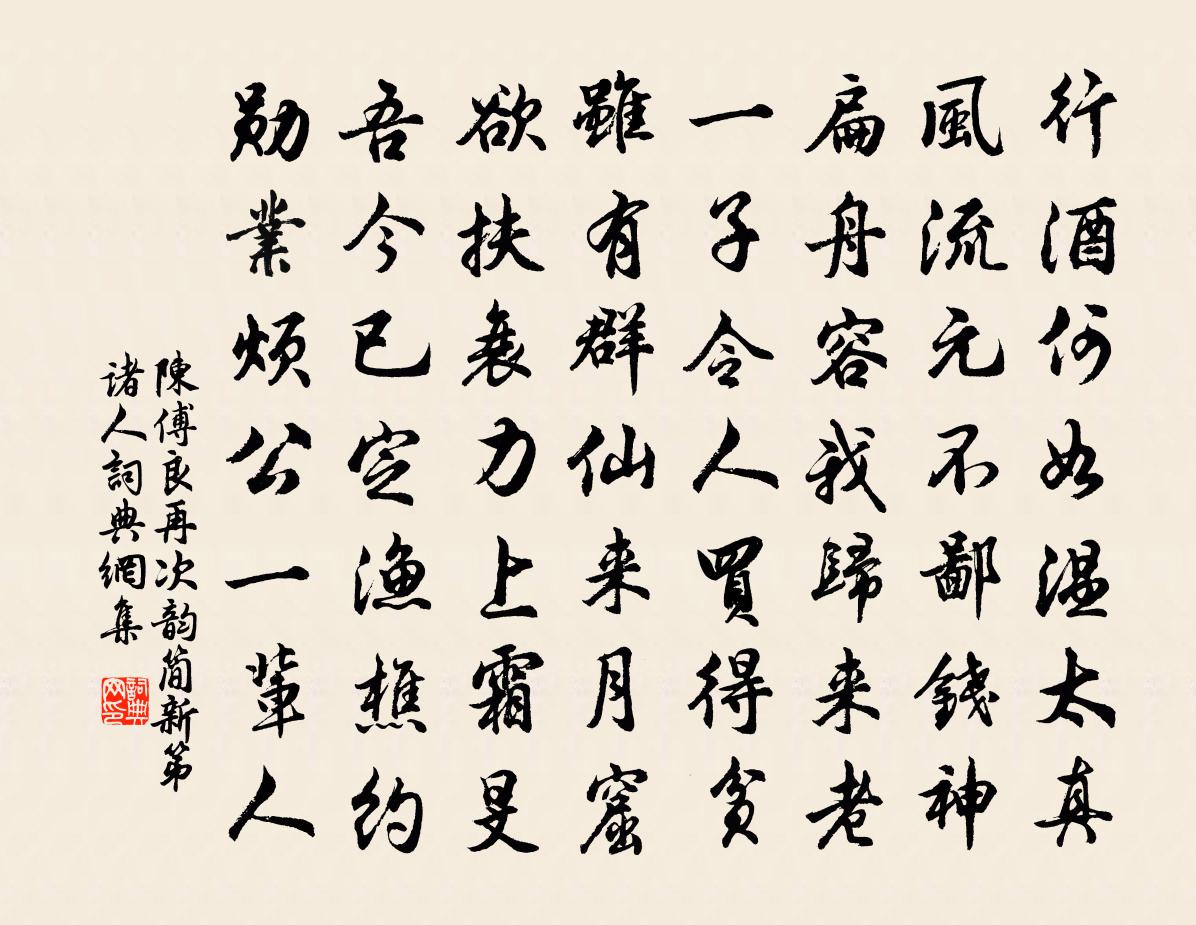 行酒何如温太真
風流元不鄙錢神
扁舟容我歸来老
一子令人買得貧
雖有群仙来月窟
欲扶衰力上霜旻
吾今已定漁樵約
勛業煩公一輩人
陳傅良再次韵简新第
諸人詞典網集
詞典网印